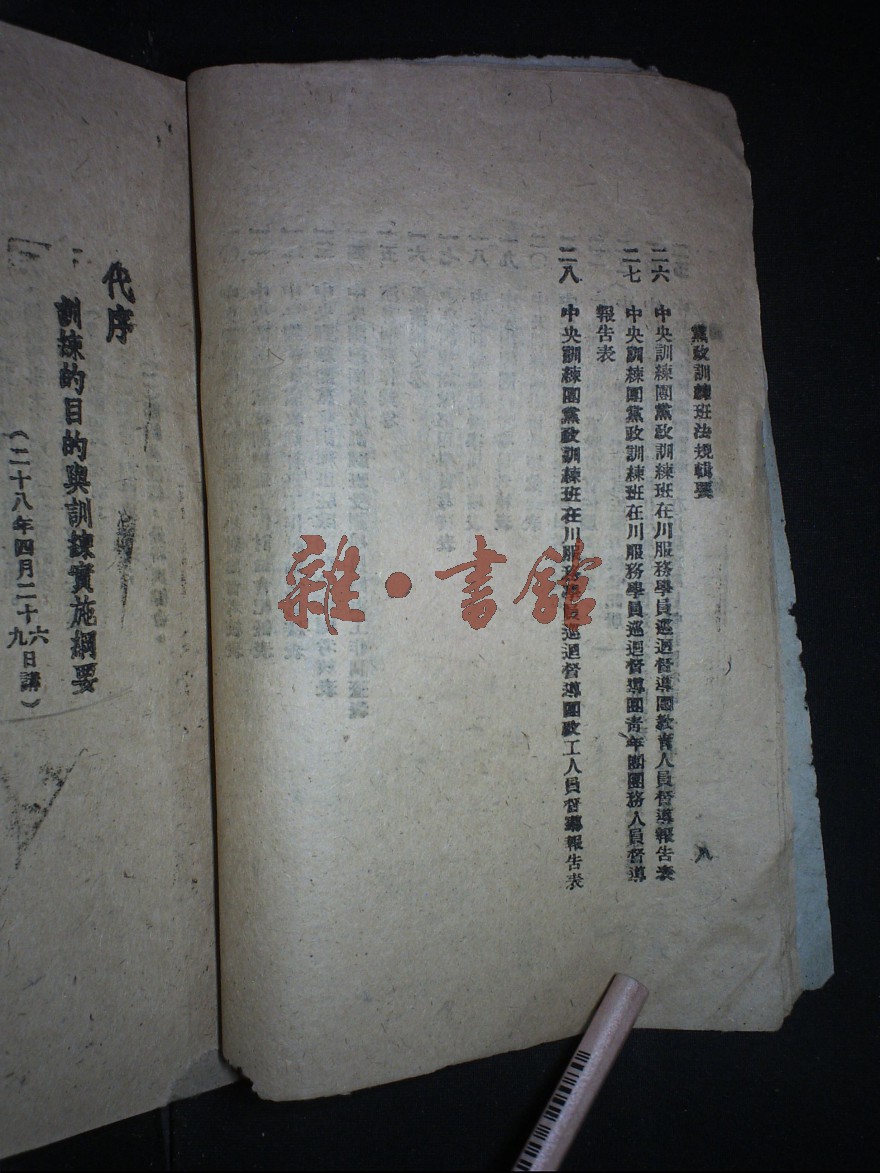 黨政訓練班法規輯要
八
二六 中央訓練團黨政訓練班在川服務學員巡迴督導團敎育人員督導報告表
二七 中央訓練團黨政訓練班在川服務學員巡迴督導團靑年團團務人員督導
報告表
二八 中央訓練團黨政訓練班在川服務學員巡迴督導團政工人員督導報告表
代序
訓練的目的與訓練實施綱要
(二十八年四月二十六九日講)
雜·書館